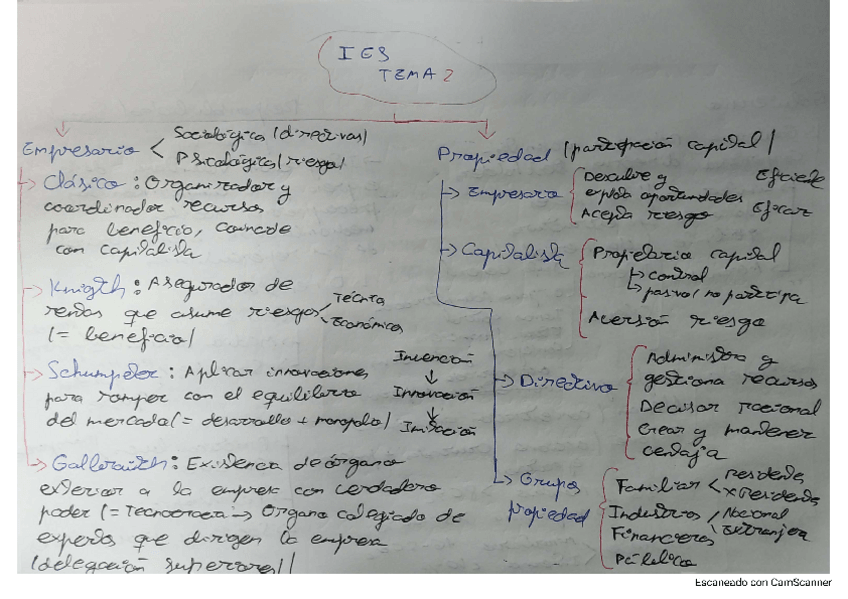 IES
TEMA 2
Empresario < Sociológica (directivas)
Psicológica (riesgo)
→ Clásico : Organizador y
coordinador recursos
para beneficio, coincide
con capitalista
→ Knigth : Asegurador de
rentas que asume riesgos < Técnico
Económicos
(= beneficio)
→ Schumpeter : Aplicar innovaciones
para romper con el equilibrio
del mercado (= desarrollo + monopolio)
Invención
↓
Innovación
↓
Imitación
→ Galbraith : Existencia de órgano
exterior a la empresa con verdadero
poder (= Tecnocracia → Organo colegiado de
expertos que dirigen la empresa
(delegación superiores))
Propiedad (participación capital)
→ Empresario { Descubre y
explota oportunidades
Acepta riesgo
Eficaz
→ Capitalista { Propietario capital
↳ control
↳ pasivo / no participa
Aversión riesgo
→ Directivo { Administra y
gestiona recursos
Decisor racional
Crear y mantener
ventaja
→ Grupos
propiedad
Familiar <
Industrias / Nacional
Financieros \ Extranjera
Pública
Escaneado con CamScanner